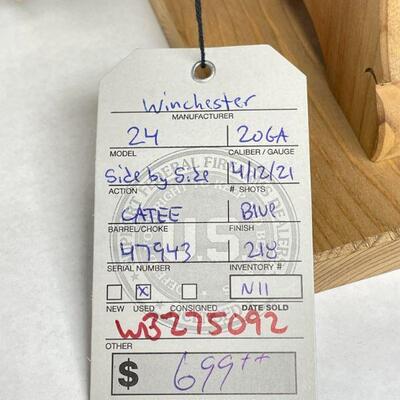 Winchester
MANUFACTURER
24 20GA
MODEL CALIBER / GAUGE
Side by Side 4/12/21
ACTION # SHOTS
CATEE Blue
BARREL/CHOKE FINISH
47943 218
SERIAL NUMBER INVENTORY #
X N11
NEW USED CONSIGNED DATE SOLD
W3275092
OTHER
$ 699++